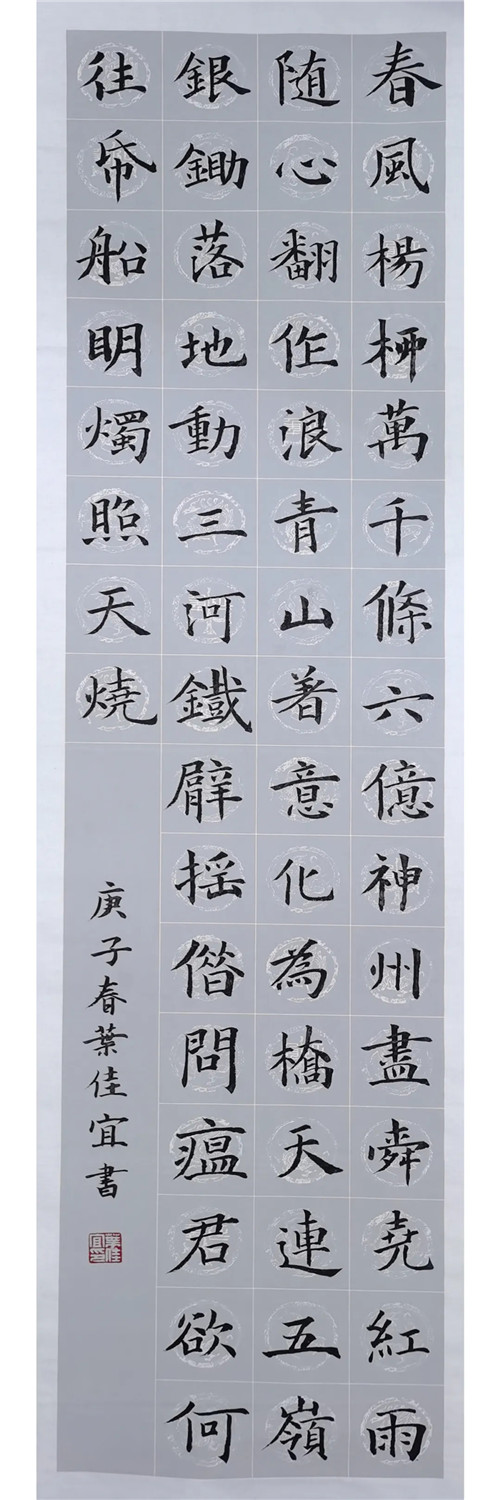 春風楊柳萬千條六億神州盡舜堯紅雨
随心翻作浪青山着意化為橋天連五嶺
銀鋤落地動三河鐵臂摇借問瘟君欲何
往帋船明燭照天燒
庚子春葉佳宜書